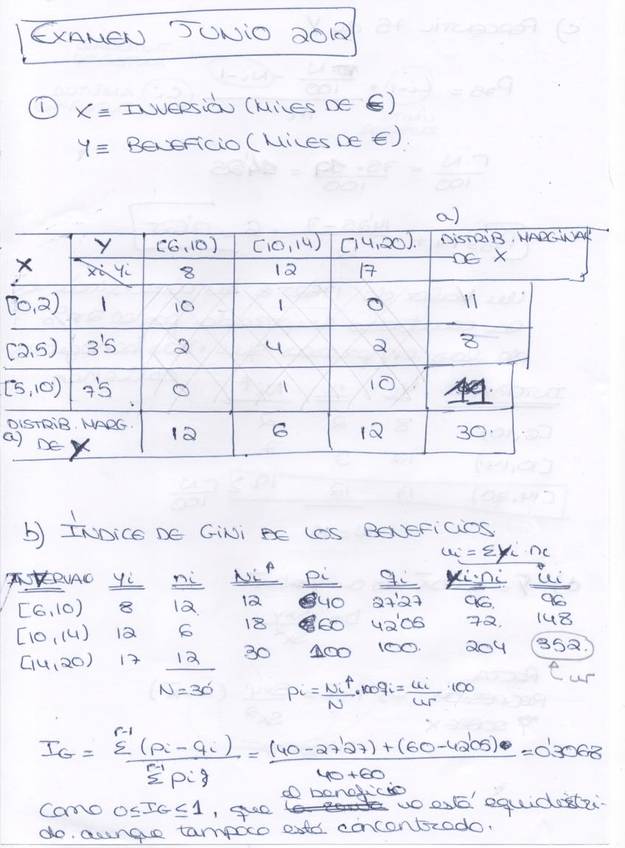 EXAMEN JUNIO 2012
① X ≡ INVERSIÓN (MILES DE €)
Y ≡ BENEFICIO (MILES DE €).
a)
Y [6,10) [10,14) [14,20). DISTRIB. MARGINAL
X xi yi 8 12 17 DE X
[0,2) 1 10 1 0 11
[2,5) 3'5 2 4 2 8
[5,10) 7'5 0 1 10 11
DISTRIB. MARG.
a) DE Y 12 6 12 30.
b) ÍNDICE DE GINI DE LOS BENEFICIOS
ui = Σyi·ni
INTERVALO yi ni Ni↑ pi qi yi·ni ui
[6,10) 8 12 12 40 27'27 96. 96
[10,14) 12 6 18 60 42'05 72. 148
[14,20) 17 12 30 100 100. 204 352.
N=30 pi = Ni↑/N ·100 qi = ui/ur ·100 ur
IG = Σ^{r-1} (pi - qi) / Σ^{r-1} pi = (40-27'27)+(60-42'05) / 40+60 = 0'3068
el beneficio
Como 0≤IG≤1, que no está equidistri-
do. aunque tampoco está concentrado.